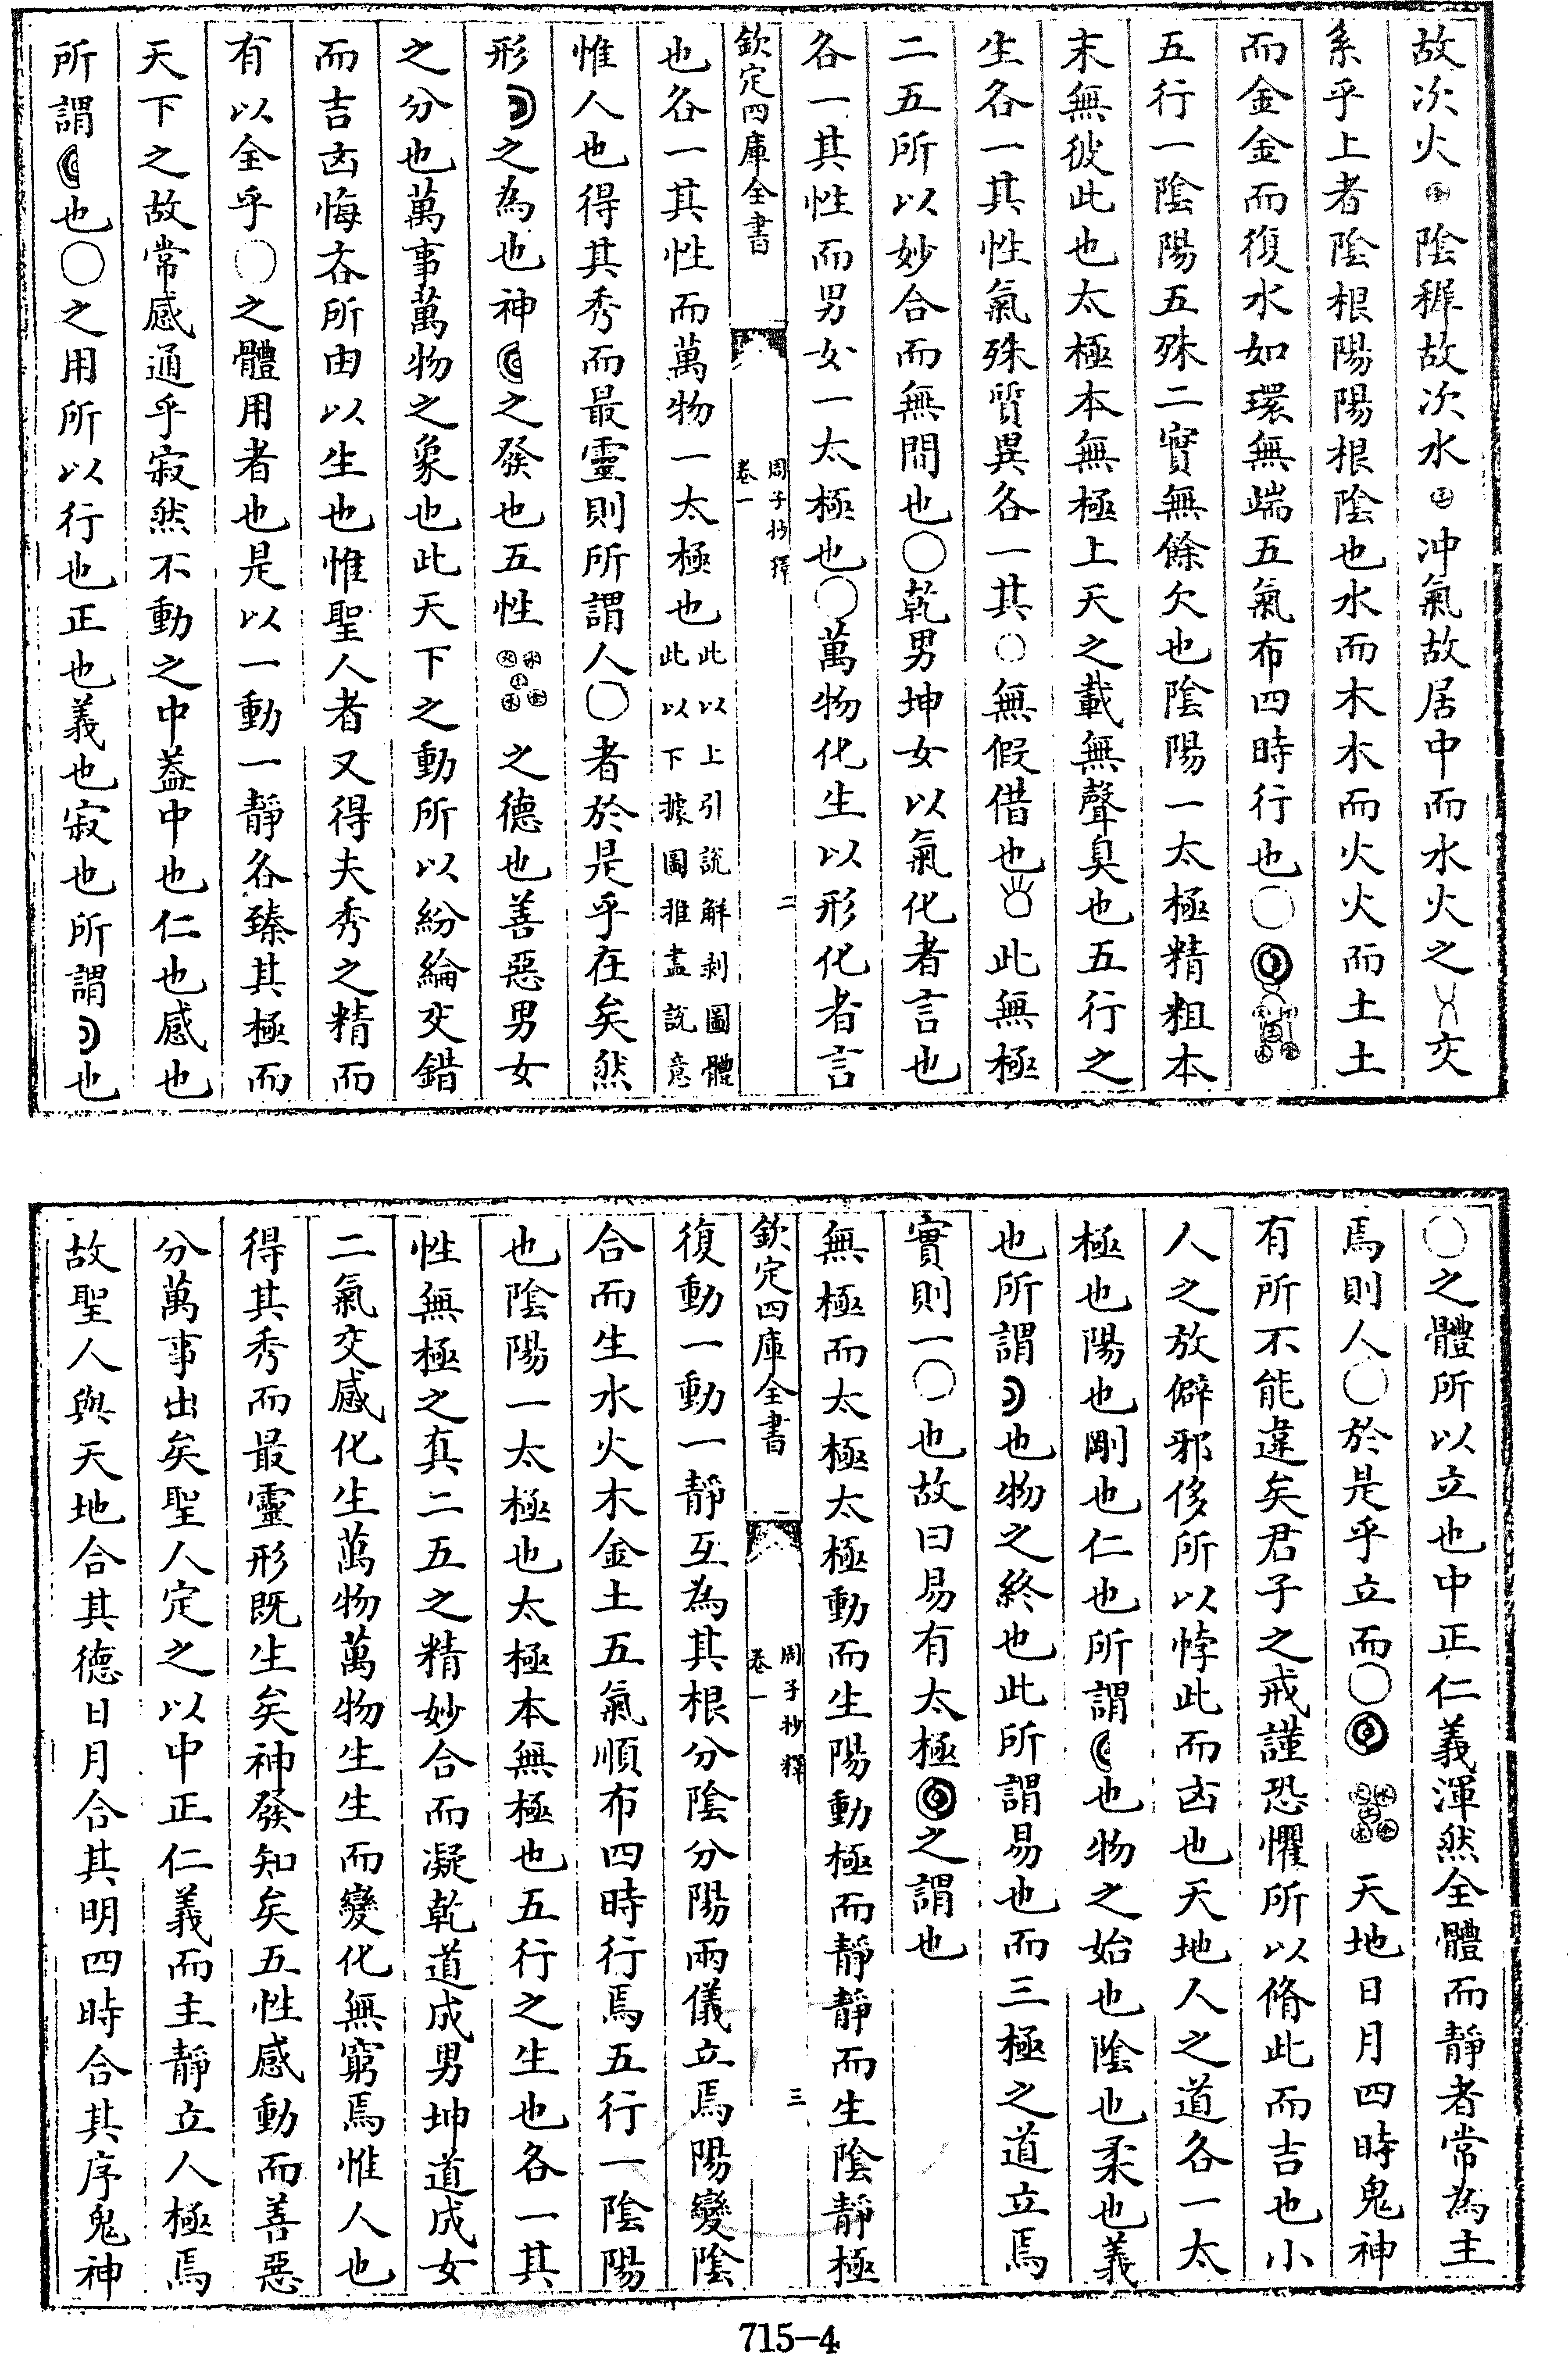 故次火㊍陰穉故次水㊏冲氣故居中而水火之交
系乎上者陰根陽陽根陰也水而木木而火火而土土
而金金而復水如環無端五氣布四時行也○◎
五行一陰陽五殊二實無餘欠也陰陽一太極精粗本
末無彼此也太極本無極上天之載無聲臭也五行之
生各一其性氣殊質異各一其○無假借也此無極
二五所以妙合而無間也○乾男坤女以氣化者言也
各一其性而男女一太極也○萬物化生以形化者言
欽定四庫全書
周子抄釋
卷一
二
也各一其性而萬物一太極也此以上引說解剥圖體
此以下據圖推盡說意
惟人也得其秀而最靈則所謂人○者於是乎在矣然
形之為也神之發也五性之德也善惡男女
之分也萬事萬物之象也此天下之動所以紛綸交錯
而吉凶悔吝所由以生也惟聖人者又得夫秀之精而
有以全乎○之體用者也是以一動一靜各臻其極而
天下之故常感通乎寂然不動之中葢中也仁也感也
所謂也○之用所以行也正也義也寂也所謂也
○之體所以立也中正仁義渾然全體而靜者常為主
焉則人○於是乎立而○◎天地日月四時鬼神
有所不能違矣君子之戒謹恐懼所以脩此而吉也小
人之放僻邪侈所以悖此而凶也天地人之道各一太
極也陽也剛也仁也所謂也物之始也陰也柔也義
也所謂也物之終也此所謂易也而三極之道立焉
實則一○也故曰易有太極◎之謂也
無極而太極太極動而生陽動極而靜靜而生陰靜極
欽定四庫全書
周子抄釋
卷一
三
復動一動一靜互為其根分陰分陽兩儀立焉陽變陰
合而生水火木金土五氣順布四時行焉五行一陰陽
也陰陽一太極也太極本無極也五行之生也各一其
性無極之真二五之精妙合而凝乾道成男坤道成女
二氣交感化生萬物萬物生生而變化無窮焉惟人也
得其秀而最靈形既生矣神發知矣五性感動而善惡
分萬事出矣聖人定之以中正仁義而主靜立人極焉
故聖人與天地合其德日月合其明四時合其序鬼神
715-4